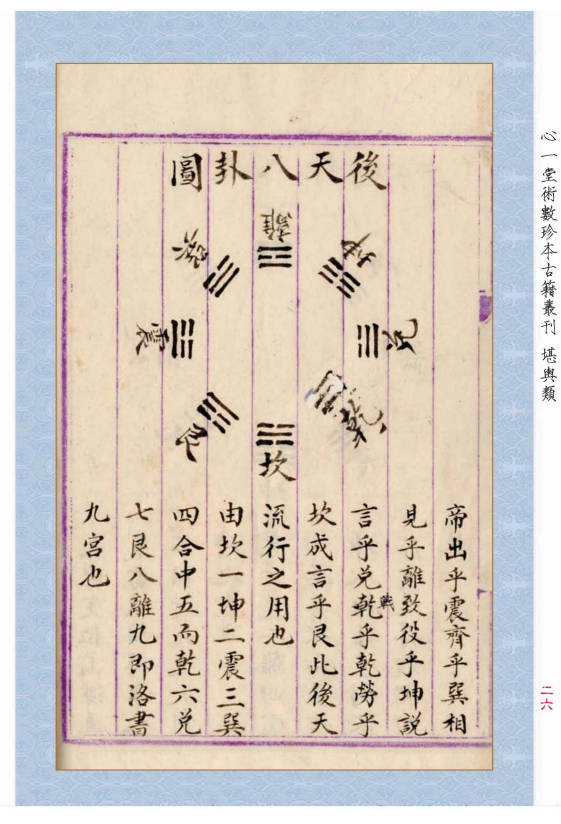 心一堂術數珍本古籍叢刊 堪輿類
二六
後天八卦圖
離
坤
兌
乾
坎
艮
震
巽
帝出乎震齊乎巽相
見乎離致役乎坤說
言乎兌乾戰乎乾勞乎
坎成言乎艮此後天
流行之用也
由坎一坤二震三巽
四合中五而乾六兌
七艮八離九即洛書
九宮也